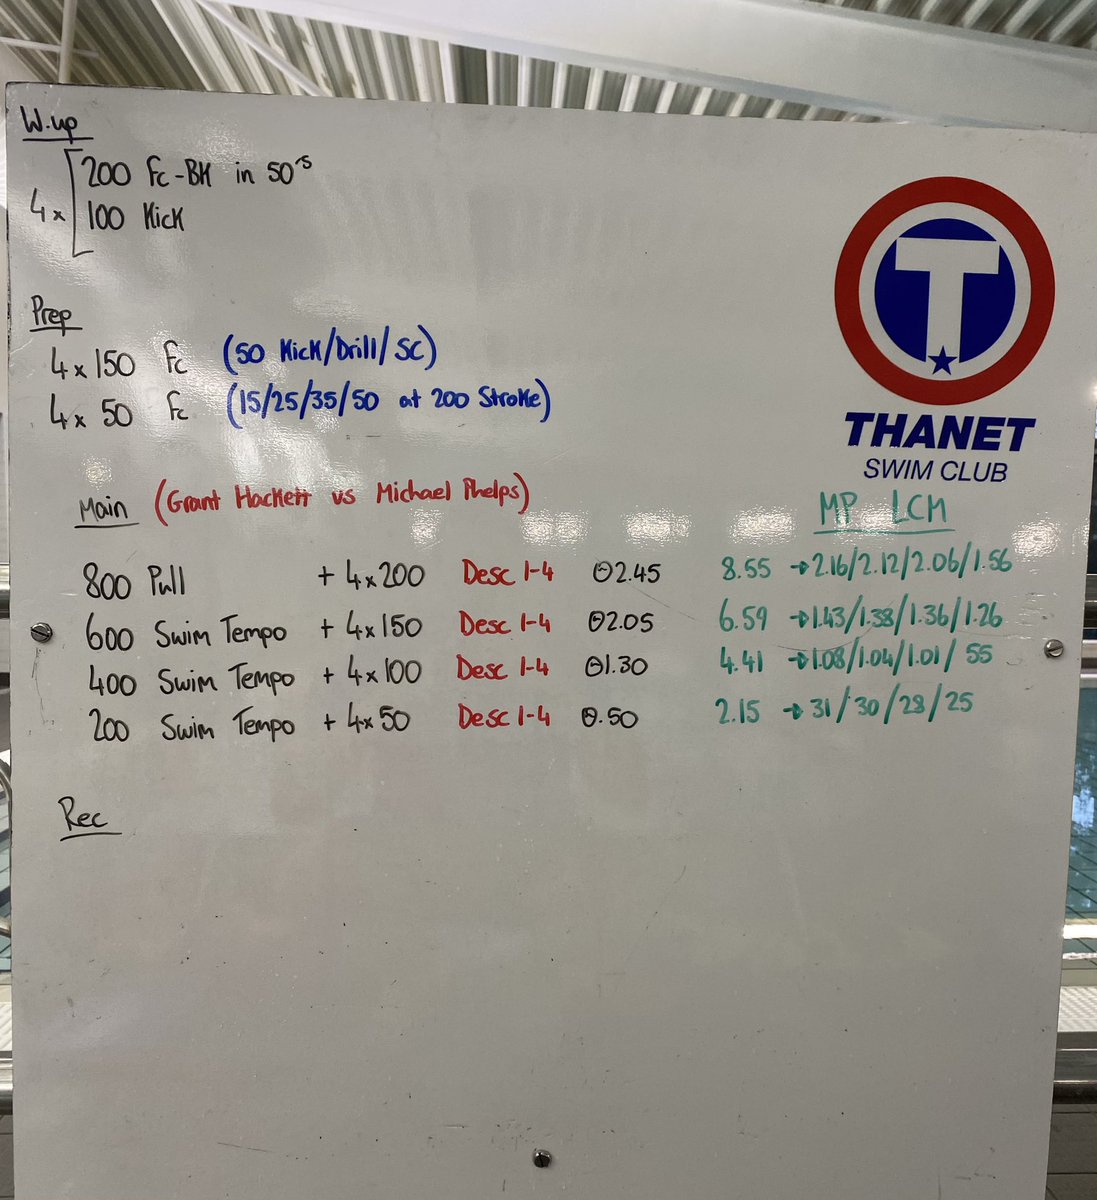 W.up
4x
200 Fc-BK in 50's
100 Kick
Prep
4x150 Fc (50 Kick/Drill/SC)
4x 50 Fc (15/25/35/50 at 200 Stroke)
Main (Grant Hackett vs Michael Phelps)
800 Pull + 4x200 Desc 1-4 @2.45
600 Swim Tempo + 4x150 Desc 1-4 @2.05
400 Swim Tempo + 4x100 Desc 1-4 @1.30
200 Swim Tempo + 4x 50 Desc 1-4 @.50
MP LCM
8.55 → 2.16/2.12/2.06/1.56
6.59 → 1.43/1.38/1.36/1.26
4.41 → 1.08/1.04/1.01/ 55
2.15 → 31/30/28/25
Rec
T
THANET
SWIM CLUB